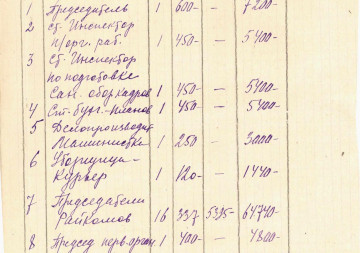 1 Председатель 1 600- - 7200-
2 Ст. Инспектор
п/орг. раб. 1 450- - 5400
3 Ст. Инспектор
по подготовке
сан. оборкадров 1 450- - 5400
4 Ст. бухг.- 1 450- - 5400
5 Делопроизводит
Машинистка 1 250 - 3000-
6 Уборщица-
Курьер 1 120- - 1440-
7 Председатели
Райкомов 16 337 5395- 64740-
8 Председ перв. орган. 1 400- - 4800-